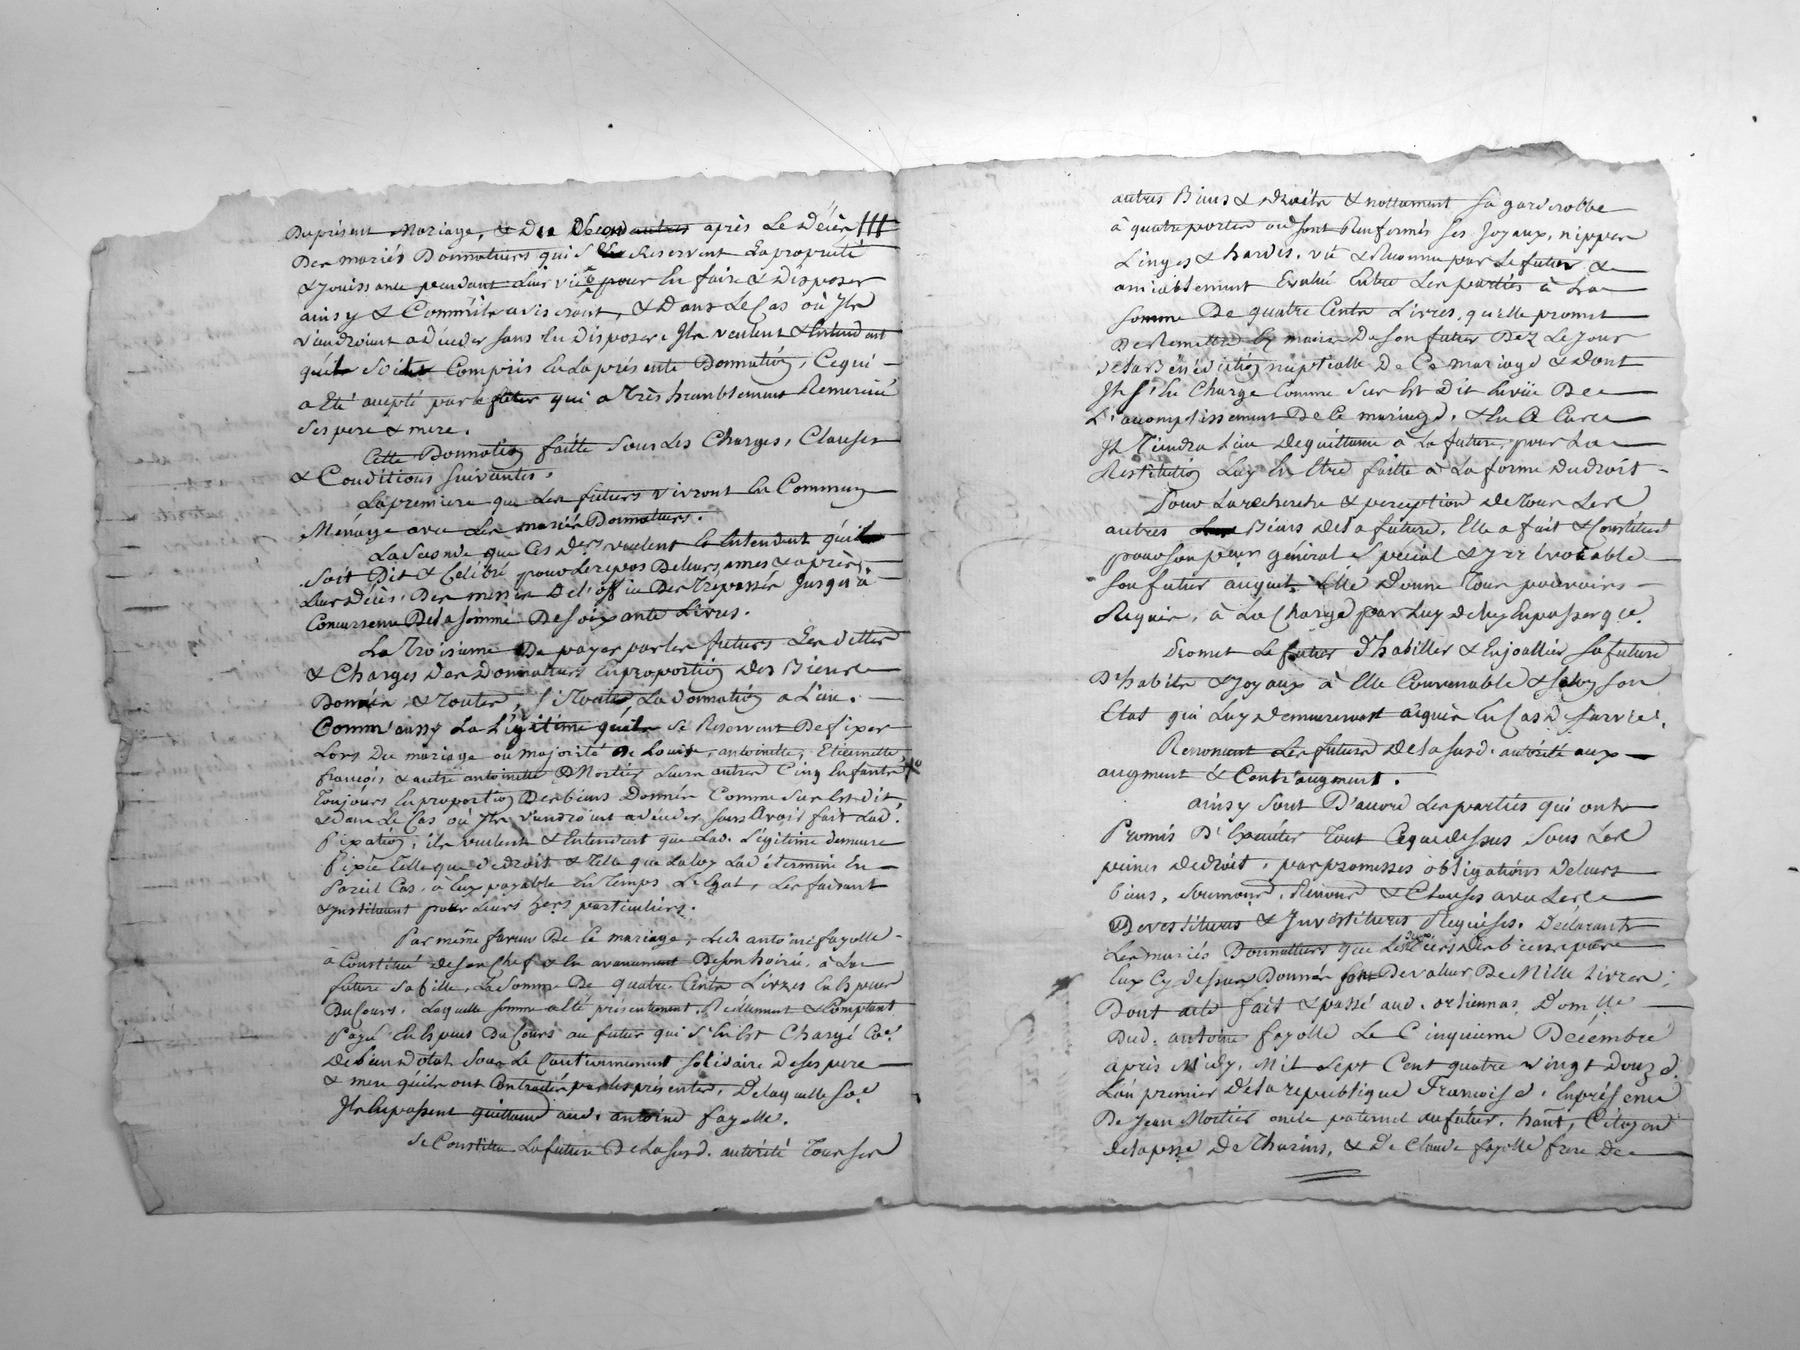 Du présent Mariage, & Des après Le Décès
Des mariés Donnateurs qui S'en Reservent La proprieté
& Jouissance pendant Leur vie pour En faire & Disposer
ainsy & Comm'ils aviseront, & Dans Le Cas où Ils
viendroient a déceder sans En disposer, Ils veulent & Entendent
qu'ils Soit Compris En La présente Donnation, Ce qui
a Eté accepté par le futur qui a très humblement Remercié
Ses pere & mere.
Cette Donnation faitte Sous Les Charges, Clauses
& Conditions Suivantes.
La premiere que Les futurs vivront En Commun
Ménage avec Les mariés Donnateurs.
La Seconde que Ces Drs veulent & Entendent qu'il
Soit Dit & Célébré pour Le repos De Leurs ames & après
Leur Décès, Des messes De L'office Des Trepassés Jusqu'à
Concurrence De La Somme De Soixante Livres.
La Troisieme De payer par les futurs Les dettes
& Charges Des Donnateurs En proportion Des Biens
Donnés & Toutes, Si Toutes, La donnation a Lieu.
Comm'aussy La Légitime qu'ils Se Reservent De fixer
Lors Du mariage ou majorité De Louise, antoinette, Etiennette
françois & autre antoinette Mortier Leurs autres Cinq Enfants
Toujours En proportion Des biens Donnés Comme Sus Est Dit
& dans Le Cas où Ils viendroient a déceder Sans avoir fait Lad.
fixation, ils veulent & Entendent que Lad. Légitime demeure
fixée Telle que de droit & Telle que La Loy La détermine En
Pareil Cas, a Eux payable En Temps Legat, Les faisant
& Instituant pour Leurs hers particuliers.
Par même faveur De Ce mariage, Led. antoine fayolle
à Constitué de Son Chef & En avancement De Son hoirie, à La
future Sa fille, La Somme De quatre Cents Livres En Especes
Du Cours, Laquelle Somme a Eté présentement, Réellement & Comptant
Payé En Especes Du Cours au futur qui S'en Est Chargé Coe
De bien Dotal Sous Le Cautionnement Solidaire De Ses pere
& mere qu'ils ont Contracté par les présentes, De laquelle Soe
Ils En passent quittance aud. antoine fayolle.
Se Constitue La future De La Susd. autorité Tous Ses
autres Biens & droits & nottamment Sa garderobbe
à quatre portes où Sont Renfermés Ses Joyaux, nippes
Linges & hardes, vû & Reconnu par Le futur &
amiablement Evalué Entre Les parties à La
Somme De quatre Cents Livres, qu'elle promet
De Remettre Es mains De Son futur Dez Le Jour
De La Bénédiction nuptialle De Ce mariage & dont
Il S'en Charge Comme Sus Est Dit En vüe De
L'acomplissement De Ce mariage, & En Ce Cas
Il Tiendra Lieu de quittance a La future, pour La
Restitution Luy En Etre faitte à La forme Du droit
Pour La recherche & perception de Tous Les
autres Biens de La future, Elle a fait & Constitué
pour Son preur général Special & Irrévocable
Son futur auquel Elle Donne Tous pouvoirs
Requis, à La Charge par Luy de luy En passer qce.
Promet Le futur d'habiller & Enjoallier Sa future
D'habits & Joyaux à Elle Convenable & Selon Son
Etat qui Luy demeureront acquis En Cas De Survie.
Renoncent Les futurs De La Susd. autorité aux
augment & Contr'augment.
ainsy Sont D'accord Les parties qui ont
Promis D'Executer Tout Ce que dessus Sous Les
peines de droit, par promesses obligations De Leurs
biens, Soumond, Renond & Clauses avec Les
Devestitures & Investitures Requises. Déclarants
Les mariés Donnateurs que Les Deux Tiers Des biens par
Eux Cy dessus Donnés Sont De valeur De Mille Livres;
Dont acte fait & passé aud. Domlle
Dud. antoine fayolle Le Cinquieme Décembre
après Midy, Mil Sept Cent quatre vingt Douze
L'an premier de la republique Francoise. En présence
De Jean Mortier oncle paternel du futur, hant, Citoyen
de La psse De Thurins, & De Claude fayolle frere De